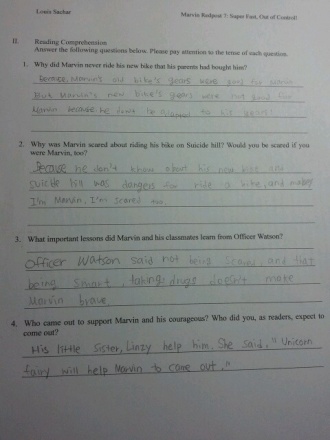 Louis Sachar
Marvin Redpost 7: Super Fast, Out of Control!
II. Reading Comprehension
Answer the following questions below. Please pay attention to the tense of each question.
1. Why did Marvin never ride his new bike that his parents had bought him?
Because, Marvin's old bike's gears were good for Marvin
But Marvin's new bike's gears were not good for
Marvin because he don't to his gears!
2. Why was Marvin scared about riding his bike on Suicide hill? Would you be scared if you
were Marvin, too?
Because he don't know about his new bike and
suicide hill was dangers for ride a bike, and maybe
I'm Marvin, I'm scared too.
3. What important lessons did Marvin and his classmates learn from Officer Watson?
Officer Watson said not being and
being smart, taking drugs doesn't make
Marvin brave
4. Who came out to support Marvin and his courageous? Who did you, as readers, expect to
come out?
His little sister, Linzy help him. She said, "Unicorn
fairy will help Marvin to come out."